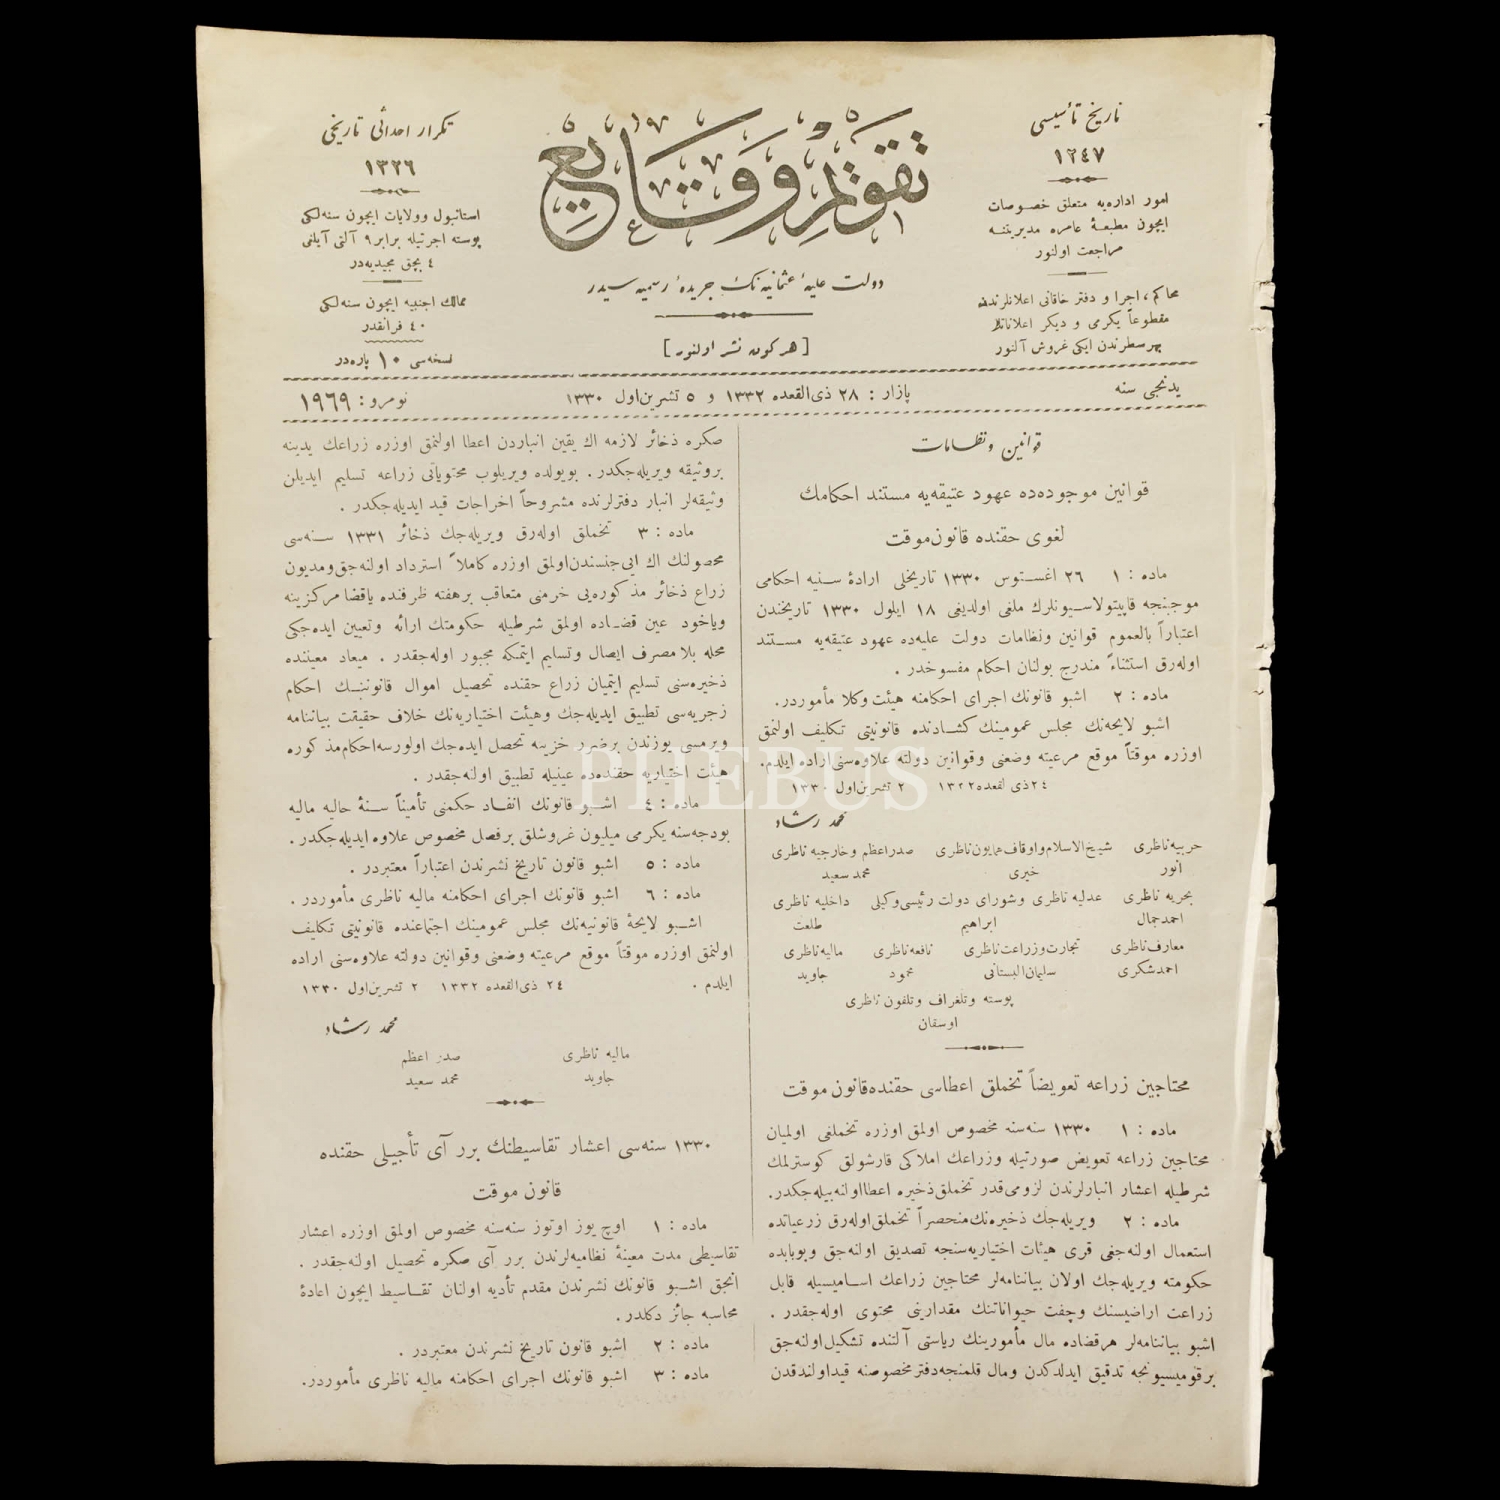 تاريخ تأسيسى
١٢٤٧
امور اداره‌يه متعلق خصوصات
ايچون مطبعۀ عامره مديريتنه
مراجعت اولنور
محاكم، اجرا و دفتر خاقانى اعلانلرندن
مقطوعاً يكرمى و ديكر اعلاناتك
بهر سطرندن ايكى غروش آلنور
تقويم وقايع
دولت عليۀ عثمانيه‌نك جريدۀ رسميه‌سيدر
[ هركون نشر اولنور ]
تكرار احداثى تاريخى
١٣٢٦
استانبول وولايات ايچون سنه‌لكى
پوسته اجرتيله برابر ٩ آلتى آيلغى
٤ بچق مجيديه‌در
ممالك اجنبيه ايچون سنه‌لكى
٤٠ فرانقدر
نسخه‌سى ١٠ پاره‌در
يدنجى سنه
پازار : ٢٨ ذى القعده ١٣٣٢ و ٥ تشرين‌اول ١٣٣٠
نومرو : ١٩٦٩
قوانين ونظامات
قوانين موجوده‌ده عهود عتيقه‌يه مستند احكامك
لغوى حقنده قانون موقت
ماده : ١ ٢٦ اغستوس ١٣٣٠ تاريخلى ارادۀ سنيه احكامى
موجبنجه قاپيتولاسيونلرك ملغى اولديغى ١٨ ايلول ١٣٣٠ تاريخندن
اعتباراً بالعموم قوانين ونظامات دولت عليه‌ده عهود عتيقه‌يه مستند
اوله‌رق استثناءً مندرج بولنان احكام مفسوخدر .
ماده : ٢ اشبو قانونك اجراى احكامنه هيئت وكلا مأموردر.
اشبو لايحه‌نك مجلس عمومينك كشادنده قانونيتى تكليف اولنمق
اوزره موقتاً موقع مرعيته وضعنى وقوانين دولته علاوه‌سنى اراده ايلدم.
٢٤ ذى القعده ١٣٣٢ ٢ تشرين‌اول ١٣٣٠
محمد رشاد
حربيه ناظرى شيخ‌الاسلام واوقاف همايون ناظرى صدراعظم وخارجيه ناظرى
انور خيرى محمد سعيد
بحريه ناظرى عدليه ناظرى وشوراى دولت رئيسى وكيلى داخليه ناظرى
احمد جمال ابراهيم طلعت
معارف ناظرى تجارت وزراعت ناظرى نافعه ناظرى ماليه ناظرى
احمد شكرى سليمان البستانى محمود جاويد
پوسته وتلغراف وتلفون ناظرى
اوسقان
محتاجين زراعه تعويضاً تخملق اعطاسى حقنده قانون موقت
ماده : ١ ١٣٣٠ سنه‌سنه مخصوص اولمق اوزره تخملغى اولميان
محتاجين زراعه تعويض صورتيله وزراعك املاكى قارشولق كوسترلمك
شرطيله اعشار انبارلرندن لزومى قدر تخملق ذخيره اعطا اولنه‌بيله‌جكدر.
ماده : ٢ ويريله‌جك ذخيره‌نك منحصراً تخملق اوله‌رق زرعياتده
استعمال اولنه‌جغى قرى هيئات اختياريه‌سنجه تصديق اولنه‌جق وبوبابده
حكومته ويريله‌جك اولان بياننامه‌لر محتاجين زراعك اساميسيله قابل
زراعت اراضيسنك وچفت حيواناتنك مقدارينى محتوى اوله‌جقدر .
اشبو بياننامه‌لر هرقضاده مال مأمورينك رياستى آلتنده تشكيل اولنه‌جق
برقوميسيونجه تدقيق ايدلدكدن ومال قلمنجه دفتر مخصوصنه قيد اولندقدن
صكره ذخائر لازمه اك يقين انباردن اعطا اولنمق اوزره زراعك يدينه
بروثيقه ويريله‌جكدر . بويولده ويريلوب محتوياتى زراعه تسليم ايديلن
وثيقه‌لر انبار دفترلرنده مشروحاً اخراجات قيد ايديله‌جكدر .
ماده : ٣ تخملق اوله‌رق ويريله‌جك ذخائر ١٣٣١ سنه‌سى
محصولنك اك ايى جنسندن اولمق اوزره كاملاً استرداد اولنه‌جق ومديون
زراع ذخائر مذكوره‌يى خرمنى متعاقب برهفته ظرفنده ياقضا مركزينه
وياخود عين قضاده اولمق شرطيله حكومتك ارائه وتعيين ايده‌جكى
محله بلامصرف ايصال وتسليم ايتمكه مجبور اوله‌جقدر . ميعاد معيننده
ذخيره‌سنى تسليم ايتميان زراع حقنده تحصيل اموال قانوننك احكام
زجريه‌سى تطبيق ايديله‌جك وهيئت اختياريه‌نك خلاف حقيقت بياننامه
ويرمسى يوزندن برضرر خزينه تحصل ايده‌جك اولورسه احكام مذكوره
هيئت اختياريه حقنده‌ده عينيله تطبيق اولنه‌جقدر .
ماده : ٤ اشبو قانونك انفاد حكمنى تأميناً سنۀ حاليه ماليه
بودجه‌سنه يكرمى ميليون غروشلق برفصل مخصوص علاوه ايديله‌جكدر.
ماده : ٥ اشبو قانون تاريخ نشرندن اعتباراً معتبردر .
ماده : ٦ اشبو قانونك اجراى احكامنه ماليه ناظرى مأموردر .
اشبو لايحۀ قانونيه‌نك مجلس عمومينك اجتماعنده قانونيتى تكليف
اولنمق اوزره موقتاً موقع مرعيته وضعنى وقوانين دولته علاوه‌سنى اراده
ايلدم . ٢٤ ذى القعده ١٣٣٢ ٢ تشرين‌اول ١٣٣٠
محمد رشاد
ماليه ناظرى صدر اعظم
جاويد محمد سعيد
١٣٣٠ سنه‌سى اعشار تقاسيطنك برر آى تأجيلى حقنده
قانون موقت
ماده : ١ اوچ يوز اوتوز سنه‌سنه مخصوص اولمق اوزره اعشار
تقاسيطى مدت معينۀ نظاميه‌لرندن برر آى صكره تحصيل اولنه‌جقدر .
انجق اشبو قانونك نشرندن مقدم تأديه اولنان تقاسيط ايچون اعادۀ
محاسبه جائز دكلدر.
ماده : ٢ اشبو قانون تاريخ نشرندن معتبردر .
ماده : ٣ اشبو قانونك اجراى احكامنه ماليه ناظرى مأموردر.
PHEBUS